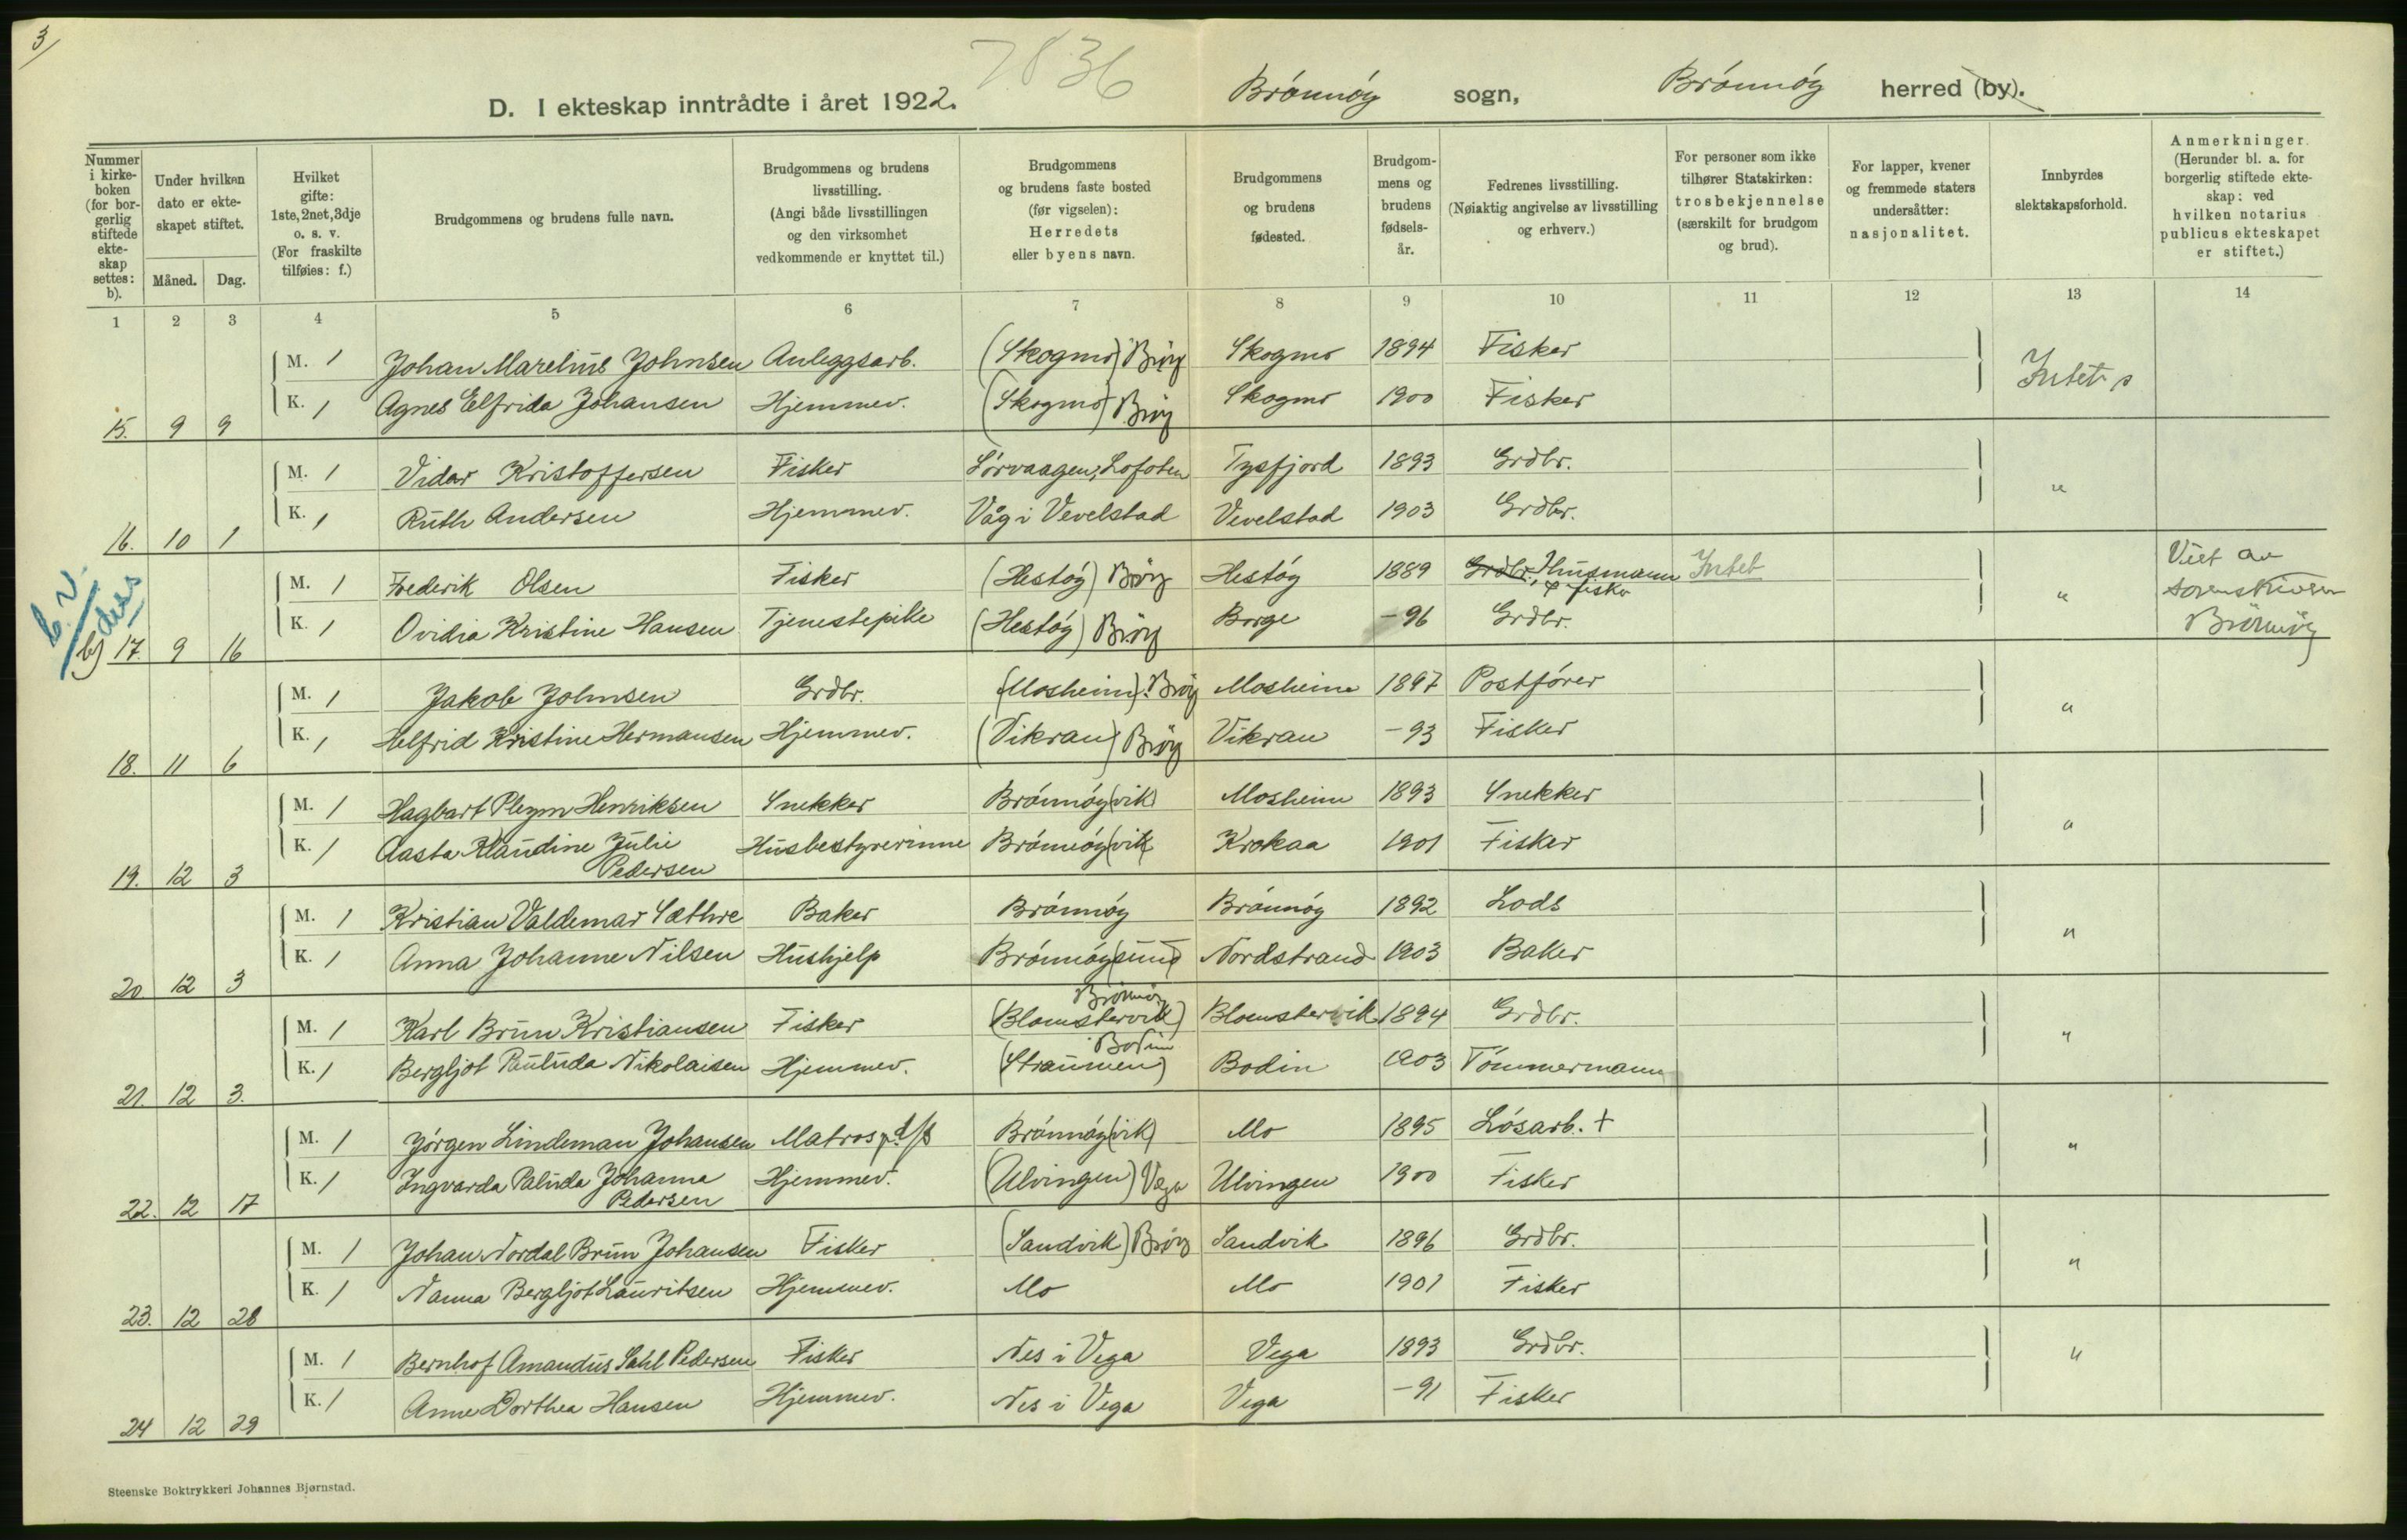 3/
7836
D. I ekteskap inntrådte i året 1922. Brönnöy sogn, Brönnöy herred (by).
Nummer i kirkeboken (for borgerlig stiftede ekteskap settes: b).
Under hvilken dato er ekteskapet stiftet.
Måned. Dag.
Hvilket gifte: 1ste, 2net, 3dje o. s. v. (For fraskilte tilføies: f.)
Brudgommens og brudens fulle navn.
Brudgommens og brudens livsstilling. (Angi både livsstillingen og den virksomhet vedkommende er knyttet til.)
Brudgommens og brudens faste bosted (før vigselen): Herredets eller byens navn.
Brudgommens og brudens fødested.
Brudgommens og brudens fødselsår.
Fedrenes livsstilling. (Nøiaktig angivelse av livsstilling og erhverv.)
For personer som ikke tilhører Statskirken: trosbekjennelse (særskilt for brudgom og brud).
For lapper, kvener og fremmede staters undersåtter: nasjonalitet.
Innbyrdes slektskapsforhold.
Anmerkninger. (Herunder bl. a. for borgerlig stiftede ekteskap: ved hvilken notarius publicus ekteskapet er stiftet.)
1 2 3 4 5 6 7 8 9 10 11 12 13 14
M. 1 Johan Marelius Johnsen Anleggsarb. (Skogmo) Bröy Skogmo 1894 Fisker Intet
K. 1 Agnes Elfrida Johansen Hjemmev. (Skogmo) Bröy Skogmo 1900 Fisker
15. 9 9
M. 1 Vidar Kristoffersen Fisker Sörvaagen, Lofoten Tysfjord 1893 Grdbr. "
K. 1 Ruth Andersen Hjemmev. Våg i Vevelstad Vevelstad 1903 Grdbr.
16. 10 1
M. 1 Frederik Olsen Fisker (Hestöy) Bröy Hestöy 1889 Grdbr. Husmann & fisker Intet " Viet av sorenskriveren Brönnöy
K. 1 Ovidia Kristine Hansen Tjenestepike (Hestöy) Bröy Borge -96 Grdbr.
b) 17. 9 16
M. 1 Jakob Johnsen Grdbr. (Mosheim) Bröy Mosheim 1897 Postförer "
K. 1 Helfrid Kristine Hermansen Hjemmev. (Vikran) Bröy Vikran -93 Fisker
18. 11 6
M. 1 Hagbart Pleym Henriksen Snekker Brönnöy(vik) Mosheim 1893 Snekker "
K. 1 Aasta Klaudine Julie Pedersen Husbestyrerinne Brönnöy(vik) Krokaa 1901 Fisker
19. 12 3
M. 1 Kristian Valdemar Sæthre Baker Brönnöy Brönnöy 1892 Lods "
K. 1 Anna Johanne Nilsen Hushjelp Brönnöy(sund) Nordstrand 1903 Baker
20 12 3
M. 1 Karl Brun Kristiansen Fisker (Blomstervik) Brönnöy Blomstervik 1894 Grdbr. "
K. 1 Bergljot Pauluda Nikolaisen Hjemmev. (Straumen) Bodin Bodin 1903 Tömmermann
21. 12 3.
M. 1 Jörgen Lindeman Johansen Matros p. d/s Brönnöy(vik) Mo 1895 Lösarb. + "
K. 1 Ingvarda Paluda Johanna Pedersen Hjemmev. (Ulvingen) Vega Ulvingen 1900 Fisker
22. 12 17
M. 1 Johan Nordal Brun Johansen Fisker (Sandvik) Bröy Sandvik 1896 Grdbr. "
K. 1 Nanna Bergljot Lauritsen Hjemmev. Mo Mo 1901 Fisker
23. 12 28
M. 1 Bernhof Amandus Sahl Pedersen Fisker Nes i Vega Vega 1893 Grdbr. "
K. 1 Anne Dorthea Hansen Hjemmev. Nes i Vega Vega -91 Fisker
24 12 29
Steenske Boktrykkeri Johannes Bjørnstad.